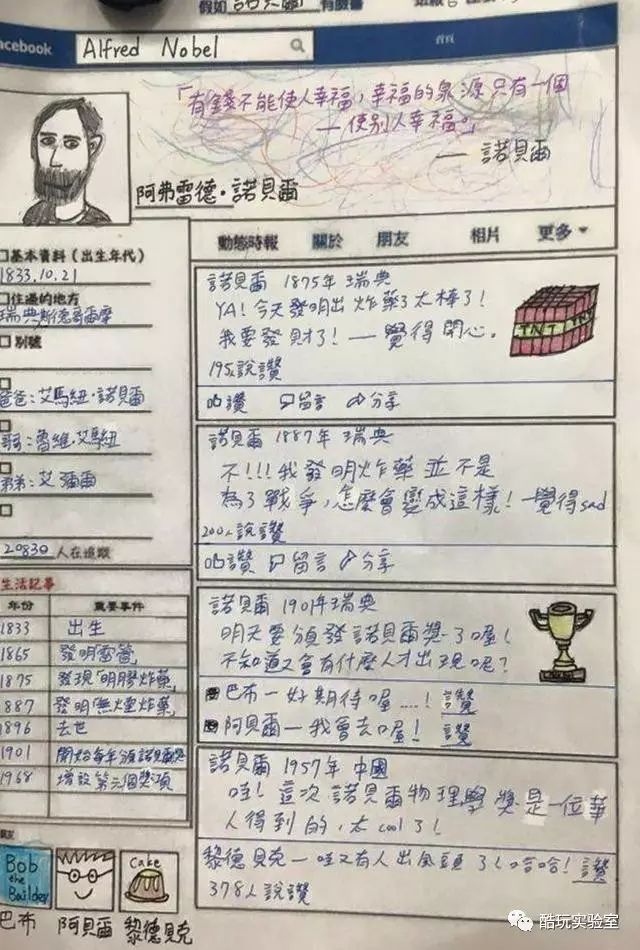 假如 諾貝爾 有臉書
facebook Alfred Nobel 首頁
「有錢不能使人幸福，幸福的泉源只有一個
—使別人幸福。」
— 諾貝爾
阿弗雷德·諾貝爾
動態時報 關於 朋友 相片 更多
基本資料（出生年代）
1833.10.21
住過的地方
瑞典斯德哥爾摩
別號
爸爸：艾馬紐·諾貝爾
哥哥：魯維·艾馬紐
弟弟：艾彌爾
20830 人在追蹤
生活記事
年份 重要事件
1833 出生
1865 發明雷管
1875 發現「明膠炸藥」
1887 發明「無煙炸藥」
1896 去世
1901 開始每年頒諾貝爾獎
1968 增設第六個獎項
Bob the Builder
Cake
巴布 阿貝爾 黎德貝克
諾貝爾 1875年 瑞典
YA！今天發明出炸藥了太棒了！
我要發財了！—覺得開心。
TNT
195人說讚
讚 留言 分享
諾貝爾 1887年 瑞典
不！！！我發明炸藥並不是
為了戰爭，怎麼會變成這樣！—覺得sad
200人說讚
讚 留言 分享
諾貝爾 1901年瑞典
明天要頒發諾貝爾獎了喔！
不知道又會有什麼人才出現呢？
巴布—好期待喔....！讚
阿貝爾—我會去喔！讚
諾貝爾 1957年 中國
哇！這次諾貝爾物理學獎是一位華
人得到的，太cool了！
黎德貝克—哇又有人出風頭了！哈哈！讚
378人說讚
酷玩实验室